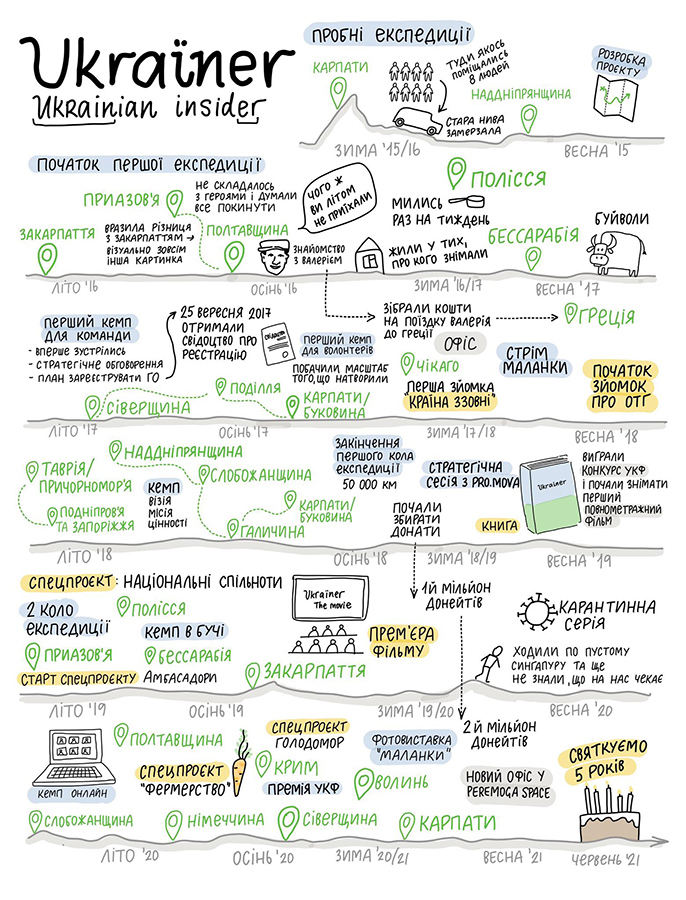 Ukraїner
Ukrainian insider
ПРОБНІ ЕКСПЕДИЦІЇ
КАРПАТИ
ТУДИ ЯКОСЬ
ПОМІЩАЛИСЬ
8 ЛЮДЕЙ
СТАРА НИВА
ЗАМЕРЗАЛА
НАДДНІПРЯНЩИНА
РОЗРОБКА
ПРОЄКТУ
ЗИМА '15/16
ВЕСНА '15
ПОЧАТОК ПЕРШОЇ ЕКСПЕДИЦІЇ
ЗАКАРПАТТЯ
ПРИАЗОВ'Я
ВРАЗИЛА РІЗНИЦЯ
З ЗАКАРПАТТЯМ →
ВІЗУАЛЬНО ЗОВСІМ
ІНША КАРТИНКА
НЕ СКЛАДАЛОСЬ
З ГЕРОЯМИ І ДУМАЛИ
ВСЕ ПОКИНУТИ
ПОЛТАВЩИНА
ЧОГО Ж
ВИ ЛІТОМ
НЕ ПРИЇХАЛИ
ЗНАЙОМСТВО
З ВАЛЕРІЄМ
ПОЛІССЯ
МИЛИСЬ
РАЗ НА ТИЖДЕНЬ
ЖИЛИ У ТИХ,
ПРО КОГО ЗНІМАЛИ
БЕССАРАБІЯ
БУЙВОЛИ
ЛІТО '16
ОСІНЬ'16
ЗИМА '16/17
ВЕСНА '17
ПЕРШИЙ КЕМП
ДЛЯ КОМАНДИ
- ВПЕРШЕ ЗУСТРІЛИСЬ
- СТРАТЕГІЧНЕ ОБГОВОРЕННЯ
- ПЛАН ЗАРЕЄСТРУВАТИ ГО
25 ВЕРЕСНЯ 2017
ОТРИМАЛИ
СВІДОЦТВО ПРО
РЕЄСТРАЦІЮ
СВІДОЦТВО
ПЕРШИЙ КЕМП
ДЛЯ ВОЛОНТЕРІВ
ПОБАЧИЛИ МАСШТАБ
ТОГО, ЩО НАТВОРИЛИ
ЗІБРАЛИ КОШТИ
НА ПОЇЗДКУ ВАЛЕРІЯ
ДО ГРЕЦІЇ
ГРЕЦІЯ
СІВЕРЩИНА
ПОДІЛЛЯ
КАРПАТИ/
БУКОВИНА
ОФІС
ЧІКАГО
"ПЕРША ЗЙОМКА
"КРАЇНА ЗЗОВНІ"
СТРІМ
МАЛАНКИ
ПОЧАТОК
ЗЙОМОК
ПРО ОТГ
ЛІТО '17
ОСІНЬ '17
ЗИМА '17/18
ВЕСНА '18
ТАВРІЯ/
ПРИЧОРНОМОР'Я
ПОДНІПРОВ'Я
ТА ЗАПОРІЖЖЯ
НАДДНІПРЯНЩИНА
КЕМП
ВІЗІЯ
МІСІЯ
ЦІННОСТІ
СЛОБОЖАНЩИНА
КАРПАТИ/
БУКОВИНА
ГАЛИЧИНА
ЗАКІНЧЕННЯ
ПЕРШОГО КОЛА
ЕКСПЕДИЦІЇ
50 000 КМ
ПОЧАЛИ
ЗБИРАТИ
ДОНАТИ
СТРАТЕГІЧНА
СЕСІЯ З PRO.MOVA
КНИГА
Ukraїner
ВИГРАЛИ
КОНКУРС УКФ
І ПОЧАЛИ ЗНІМАТИ
ПЕРШИЙ
ПОВНОМЕТРАЖНИЙ
ФІЛЬМ
ЛІТО '18
ОСІНЬ '18
ЗИМА '18/19
ВЕСНА '19
СПЕЦПРОЄКТ: НАЦІОНАЛЬНІ СПІЛЬНОТИ
2 КОЛО
ЕКСПЕДИЦІЇ
ПРИАЗОВ'Я
СТАРТ СПЕЦПРОЄКТУ
ПОЛІССЯ
КЕМП В БУЧІ
БЕССАРАБІЯ
АМБАСАДОРИ
ЗАКАРПАТТЯ
Ukraїner
The movie
ПРЕМ'ЄРА
ФІЛЬМУ
1Й МІЛЬЙОН
ДОНЕЙТІВ
КАРАНТИННА
СЕРІЯ
ХОДИЛИ ПО ПУСТОМУ
СИНГАПУРУ ТА ЩЕ
НЕ ЗНАЛИ, ЩО НА НАС ЧЕКАЄ
ЛІТО '19
ОСІНЬ '19
ЗИМА '19/20
ВЕСНА '20
КЕМП ОНЛАЙН
ПОЛТАВЩИНА
СПЕЦПРОЄКТ
"ФЕРМЕРСТВО"
СПЕЦПРОЄКТ
ГОЛОДОМОР
КРИМ
ПРЕМІЯ УКФ
ФОТОВИСТАВКА
"МАЛАНКИ"
ВОЛИНЬ
2Й МІЛЬЙОН
ДОНЕЙТІВ
НОВИЙ ОФІС У
PEREMOGA SPACE
СВЯТКУЄМО
5 РОКІВ
СЛОБОЖАНЩИНА
НІМЕЧЧИНА
СІВЕРЩИНА
КАРПАТИ
ЛІТО '20
ОСІНЬ '20
ЗИМА '20/21
ВЕСНА '21
ЧЕРВЕНЬ '21